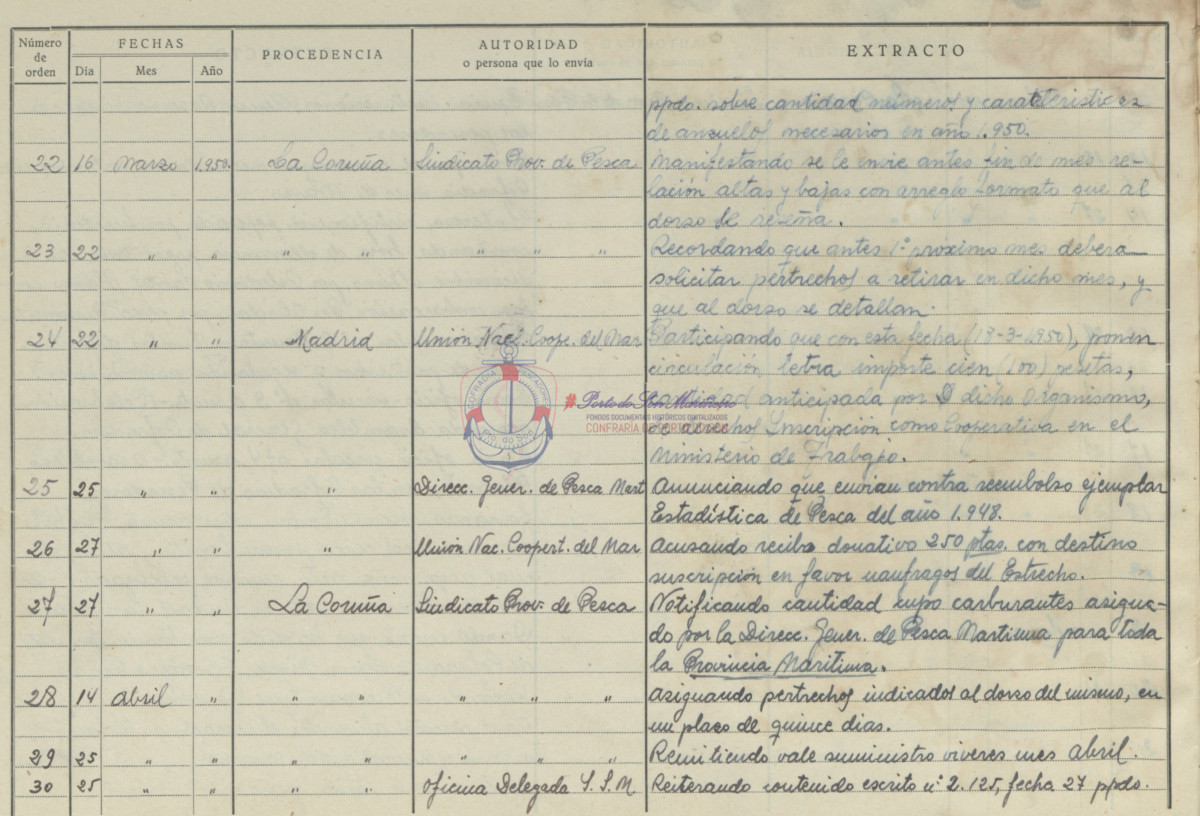 Número de orden | FECHAS | PROCEDENCIA | AUTORIDAD o persona que lo envía | EXTRACTO
Dia | Mes | Año
ppdo. sobre cantidad números y carateteristicas
de anzuelos necesarios en año 1.950.
22 16 Marzo 1.950. La Coruña Sindicato Prov. de Pesca Manifestando se le envie antes fin de mes re-
lación altas y bajas con arreglo formato que al
dorso se reseña.
23 22 " " " " " " " Recordando que antes 1º próximo mes debera
solicitar pertrechos a retirar en dicho mes, y
que al dorso se detallan.
24 22 " " Madrid Unión Nac. Coope. del Mar Participando que con esta fecha (18-3-1950), ponen
circulación letra importe cien (100) pesetas,
cantidad anticipada por dicho Organismo,
de derechos Inscripción como Cooperativa en el
Ministerio de Trabajo.
25 25 " " " Direcc. Gener. de Pesca Mart Anunciando que envian contra reembolso ejemplar
Estadística de Pesca del año 1.948.
26 27 " " " Unión Nac. Coopert. del Mar Acusando recibo donativo 250 ptas. con destino
suscripción en favor naufragos del Estrecho.
27 27 " " La Coruña Sindicato Prov. de Pesca Notificando cantidad cupo carburantes asigna-
do por la Direcc. Gener. de Pesca Martima para toda
la Provincia Maritima.
28 14 Abril " " " " " " Asignando pertrechos indicados al dorso del mismo, en
un plazo de quince dias.
29 25 " " " " " " " Remitiendo vale suministro viveres mes Abril.
30 25 " " " " Oficina Delegada S.S.M. Reiterando contenido escrito nº 2.125, fecha 27 ppdo.
COFRADIA PESCADORES
Pto. do Son
# Porto do Son Mariñeiro
FONDOS DOCUMENTAIS HISTÓRICOS DIGITALIZADOS
CONFRARÍA DE PORTO DO SON